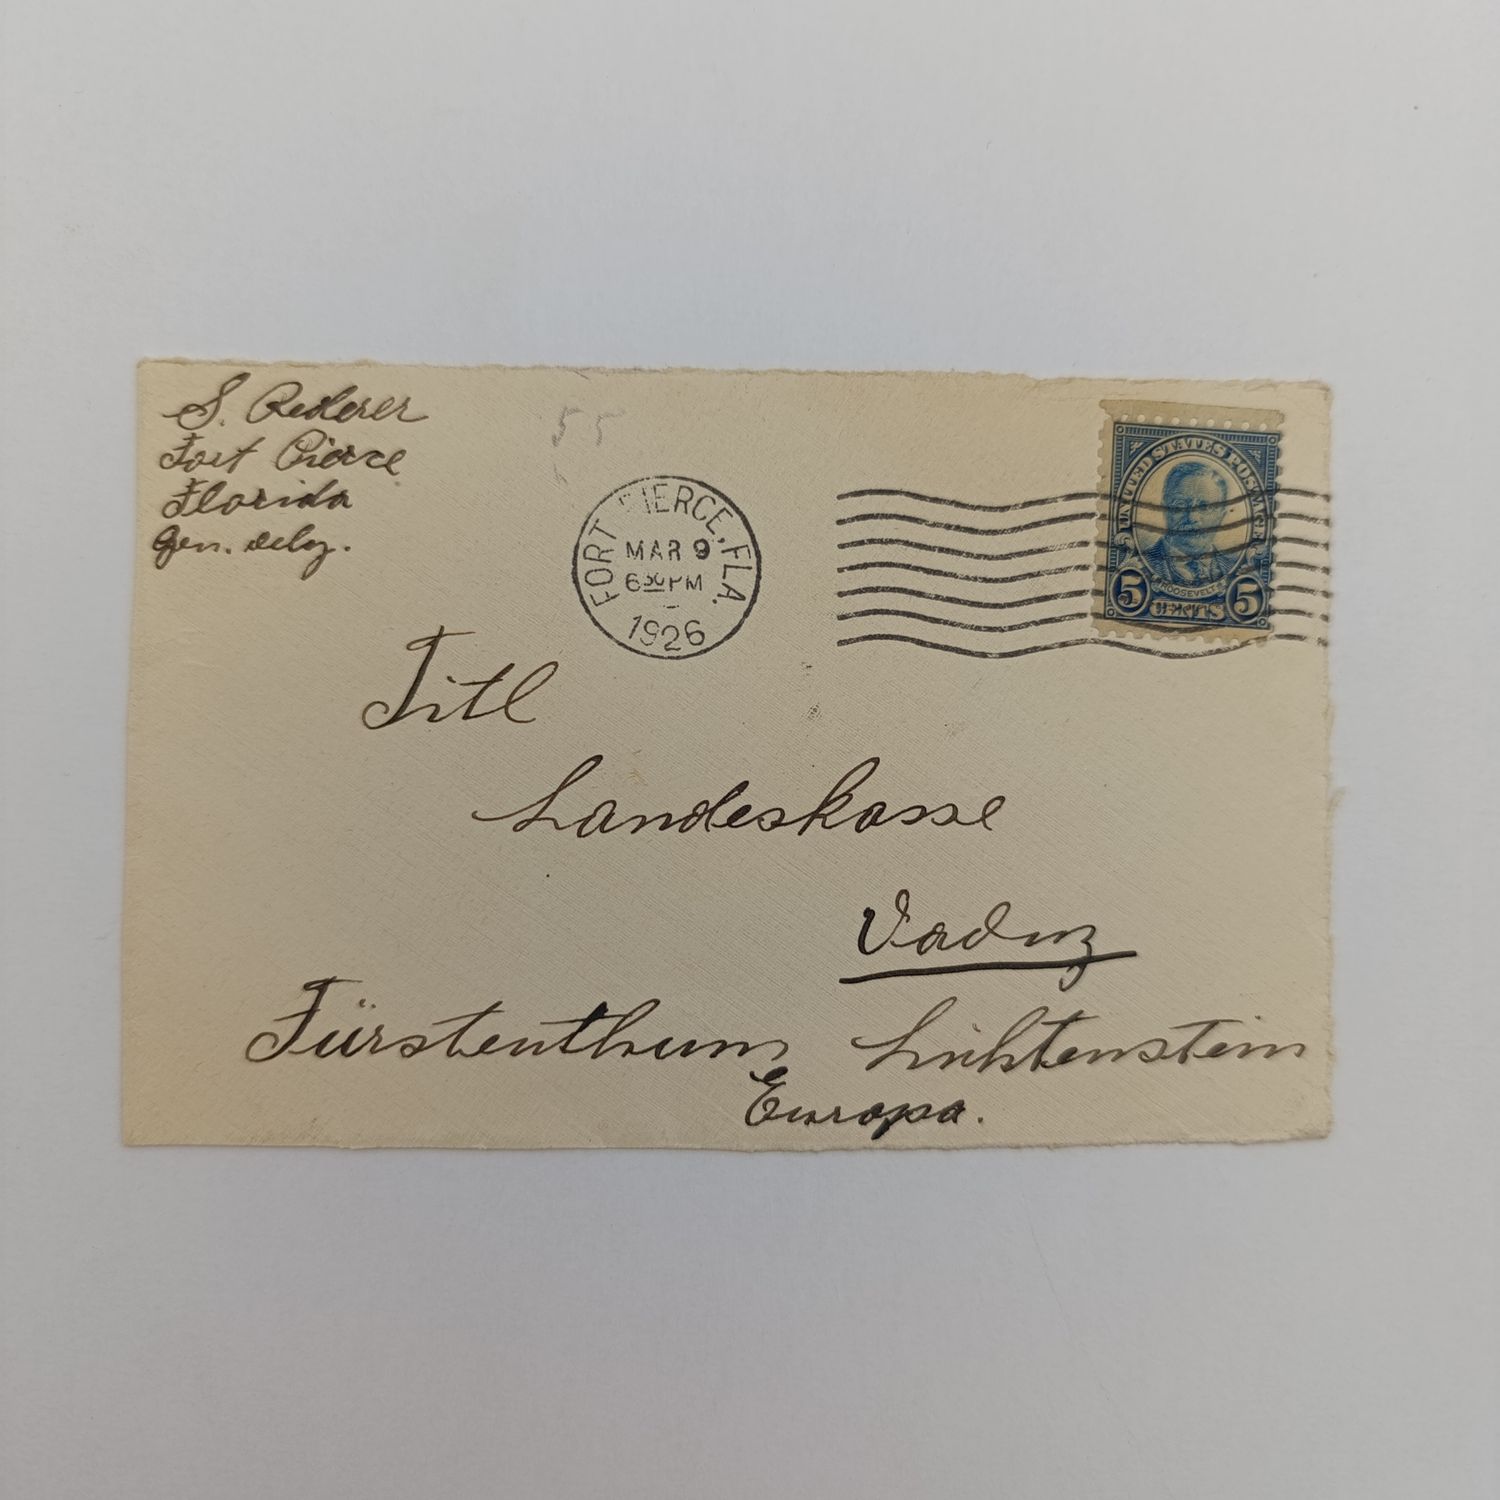 S. Rederer
Fort Pierce
Florida
Gen. Delvy.
55
FORT PIERCE, FLA.
MAR 9
6 30 PM
1926
UNITED STATES POSTAGE
ROOSEVELT
5 CENTS 5
Titl
Landeskasse
Vaduz
Fürstenthum Lichtenstein
Europa.